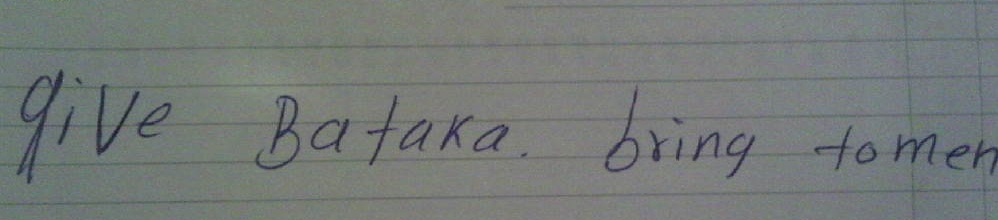 give Bataka. bring tomen